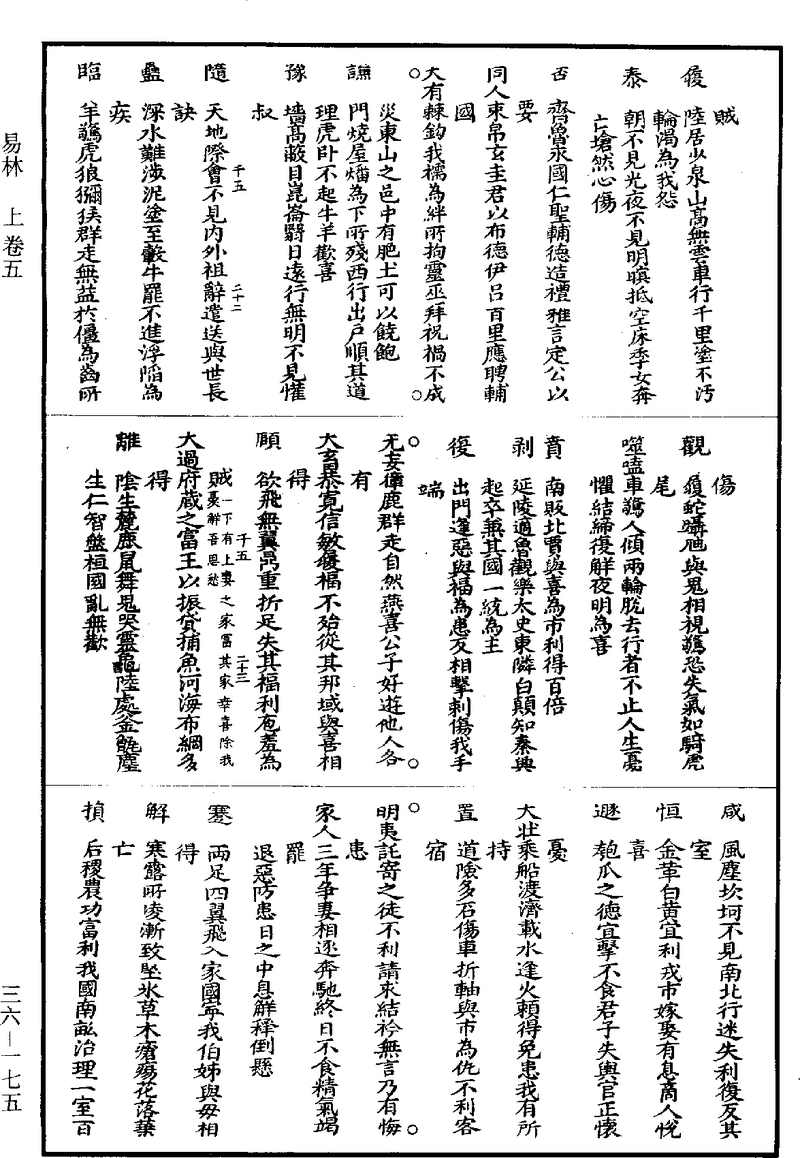 易林　上　卷五
三六—一七五
賊
履　陸居少泉山高無雲車行千里塗不汚
輪渴為我怨
泰　朝不見光夜不見明暝抵空床季女奔
亡愴然心傷
否　齊魯求國仁聖輔德造禮雅言定公以
要
同人東帛玄圭君以布德伊呂百里應聘輔
國
○大有棘鈎我襦為絆所拘靈巫拜祝禍不成○
災東山之邑中有肥土可以饒飽
謙　門燒屋燔為下所殘西行出戶順其道
理虎臥不起牛羊歡喜
豫　墻高蔽目崑崙翳日遠行無明不見懽
叔
隨　天地際會不見內外祖辭遣送與世長
千五　二十二
訣
蠱　深水難涉泥塗至轂牛罷不進浮陷為
疾
臨　羊驚虎狼獼猴群走無益於僵為齒所
傷
觀　履蛇躡虺與鬼相視驚恐失氣如騎虎
尾
噬嗑車驚人傾兩輪脫去行者不止人生憂
懼結締復解夜明為喜
賁　南販北賈與喜為市利得百倍
剥　延陵適魯觀樂太史東隣白顛知秦興
起卒兼其國一統為主
復　出門逢惡與福為患反相擊刺傷我手
端
○无妄偉鹿群走自然燕喜公子好遊他人各○
有
大畜恭寬信敏履福不殆從其邦域與喜相
得
頤　欲飛無翼鼎重折足失其福利包羞為
賊一下有上妻之家富其家幸喜除我憂解吾思愁
千五　二十三
大過府蔵之富王以振貸捕魚河海布綱多
得
離　陰生麓鹿鼠舞鬼哭靈龜陸處釜甑塵
生仁智盤桓國亂無歡
咸　風塵坎坷不見南北行迷失利復反其
室
恒　金革白黄宜利戎市嫁娶有息商人悅
喜
遯　匏瓜之德宜擊不食君子失輿官正懷
憂
大壯乘船渡濟載水逢火頼得免患我有所
持
置　道險多石傷車折軸與市為仇不利客
宿
○明夷託寄之徒不利請求結衿無言乃有悔○
患
家人三年争妻相逐奔馳終日不食精氣竭
罷
退惡防患日之中息解釋倒懸
蹇　兩足四翼飛入家國寜我伯姊與母相
得
解　寒露所凌漸致堅氷草木瘡瘍花落葉
亡
損　后稷農功富利我國南畝治理一室百